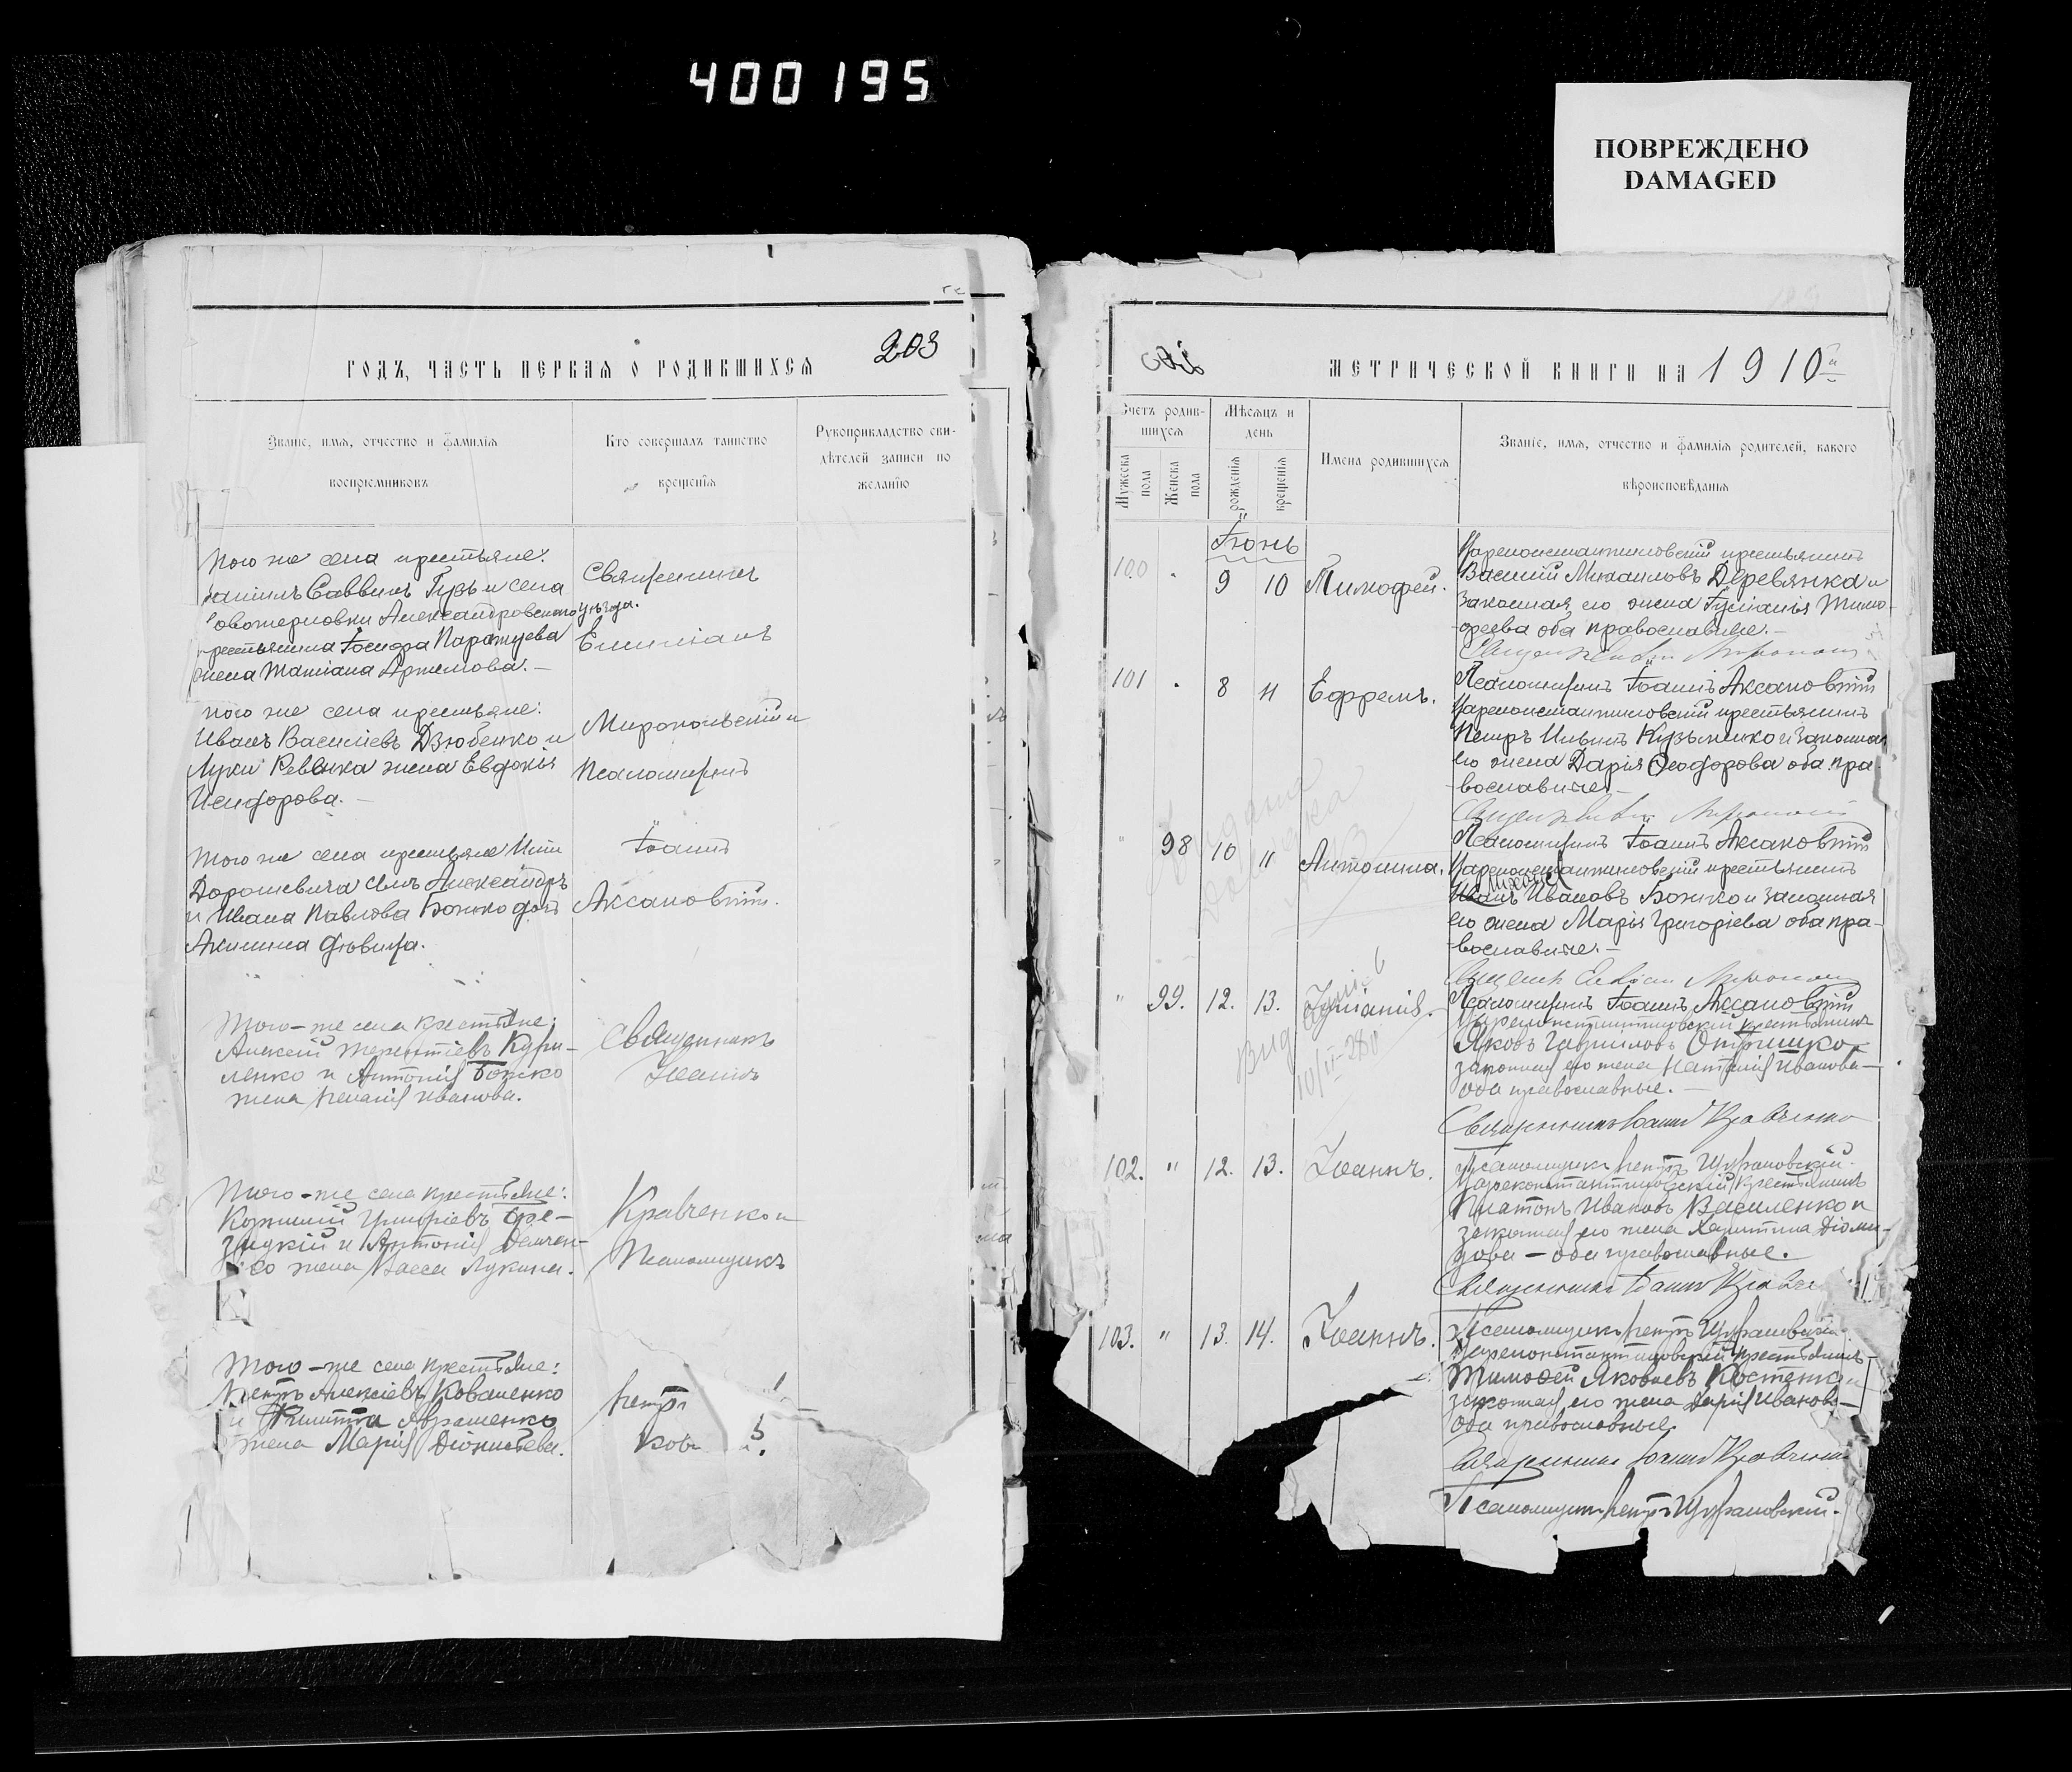 400195
ПОВРЕЖДЕНО
DAMAGED
203
ГОДЪ, ЧАСТЬ ПЕРВАЯ О РОДИВШИХСЯ
Званіе, имя, отчество и фамилія
воспріемниковъ
Кто совершалъ таинство
крещенія
Рукоприкладство сви-
дѣтелей записи по
желанію
того же села крестьяне:
Саввинъ Гузь и села
Александровскаго уѣзда.
крестьянина Іосифа
жена Татіана Артемова.—
Священникъ
Емиліанъ
того же села крестьяне:
Иванъ Василіевъ Дзюбенко и
Луки Ревенка жена Евдокія
Исидорова.—
Миропольскій и
псаломщикъ
того же села крестьяне
Дорошевича сынъ Александръ
и Ивана Павлова Божко дочь
Акилина дѣвица.
Іоаннъ
Аксаковтій.
Того-же села крестьяне:
Алексѣй Терентіевъ Кури-
ленко и Антонія Божко
жена Пелагія Иванова.
Священникъ
Іоаннъ
Того-же села крестьяне:
Корнилій Григоріевъ Бре-
зицкій и Антонія Демчен-
ко жена Васса Лукина.
Кравченко и
Псаломщикъ
Того-же села крестьяне:
Петръ Алексіевъ Коваленко
и Филиппа Абраменко
жена Марія Діонисіева.
Петръ
МЕТРИЧЕСКОЙ КНИГИ НА 1910й
Счетъ родив-
шихся
Мѣсяцъ и
день
Мужеска
пола
Женска
пола
рожденія
крещенія
Имена родившихся
Званіе, имя, отчество и фамилія родителей, какого
вѣроисповѣданія
Іюнь
100 " 9 10 Тимофей.
Цареконстантиновскій крестьянинъ
Василій Михаиловъ Деревянка и
законная его жена Іуліанія Тимо-
феева оба православные.—
101 " 8 11 Ефремъ.
Псаломщикъ Іоаннъ Аксаковтій
Цареконстантиновскій крестьянинъ
Петръ Ильинъ Кузьменко и законная
его жена Дарія Ѳеодорова оба пра-
вославные.—
" 98 10 11 Антонина.
Псаломщикъ Іоаннъ Аксаковтій
Цареконстантиновскій крестьянинъ
Ивановъ Божко и законная
его жена Марія Григоріева оба пра-
вославные.—
" 99. 12. 13. Іуліанія.
Псаломщикъ Іоаннъ Аксаковтій
Цареконстантиновскій крестьянинъ
Яковъ Гавриловъ Отришко и
законная его жена Наталія Иванова—
оба православные.—
Священникъ Іоаннъ Кравченко
102. " 12. 13. Іоаннъ.
Псаломщикъ Петръ
Цареконстантиновскій крестьянинъ
Платонъ Ивановъ Василенко и
законная его жена Харитина Діоми-
дова — оба православные.
Священникъ Іоаннъ
103. " 13. 14. Іоаннъ.
Псаломщикъ Петръ
Цареконстантиновскій крестьянинъ
Тимоѳей Яковлевъ Костенко и
законная его жена Дарія Иванова—
оба православные.
Священникъ Іоаннъ Кравченко
Псаломщикъ Петръ